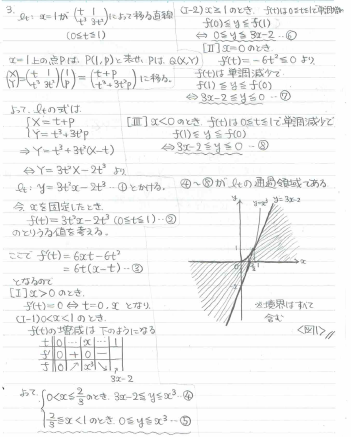 3.
ℓt : x=1 が (t 1
t³ 3t²) によって移る直線
(0≤t≤1)
x=1上の点Pは、P(1,p)と表せ、Pは、Q(X,Y)
(X
Y)=(t 1
t³ 3t²)(1
p)=(t+p
t³+3t²p) に移る。
よって、ℓtの式は
{X=t+p
Y=t³+3t²p
⇒ Y=t³+3t²(X-t)
⇔ Y=3t²X-2t³ より
ℓt : y=3t²x-2t³ …① とかける。
今 xを固定したとき
f(t)=3t²x-2t³ (0≤t≤1) …②
のとりうる値を考える。
ここで f'(t)=6xt-6t²
=6t(x-t) …③
となるので
[I] x>0 のとき、
f'(t)=0 ⇔ t=0, x となり
(I-1) 0<x<1 のとき、
f(t)の増減は下のようになる
t 0 … x … 1
f' 0 + 0 -
f 0 ↗ x³ ↘
3x-2
よって、{0<x≤2/3 のとき、3x-2≤y≤x³ …④
2/3≤x<1 のとき、0≤y≤x³ …⑤
(I-2) x≥1のとき、f(t)は0≤t≤1で単調増加
f(0)≤y≤f(1)
⇔ 0≤y≤3x-2 …⑥
[II] x=0のとき、
f'(t)=-6t²≤0 より
f(t)は単調減少で
f(1)≤y≤f(0)
⇔ 3x-2≤y≤0 …⑦
[III] x<0のとき、f(t)は0≤t≤1で単調減少で
f(1)≤y≤f(0)
⇔ 3x-2≤y≤0 …⑧
④~⑧がℓtの通過領域である
y
y=x³
y=3x-2
1
0
1
x
※境界はすべて
含む
<図1>